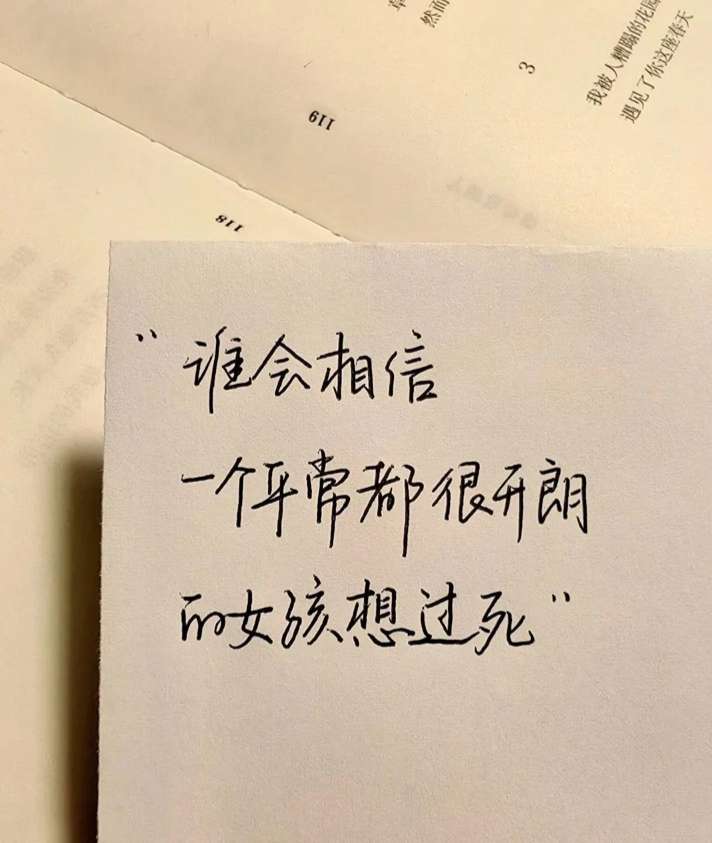 然而
3
我被人糟蹋的花园
遇见了你这座春天
119
118
“谁会相信
一个平常都很开朗
的女孩想过死”